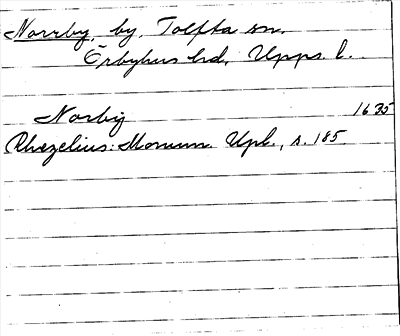 Norrby, by, Tolfta sn.
Örbyhus hd, Upps. l.
Norby 1635
Rhezelius: Monum. Upl., s. 185.